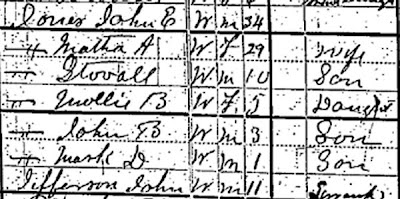 Jones John E W M 34
" Matha A W F 29 Wife
" Stovall W M 10 Son
" Mollie B W F 5 Daught
" John B W M 3 Son
" Mark D W M 1 Son
Jefferson John W M 11 Servant